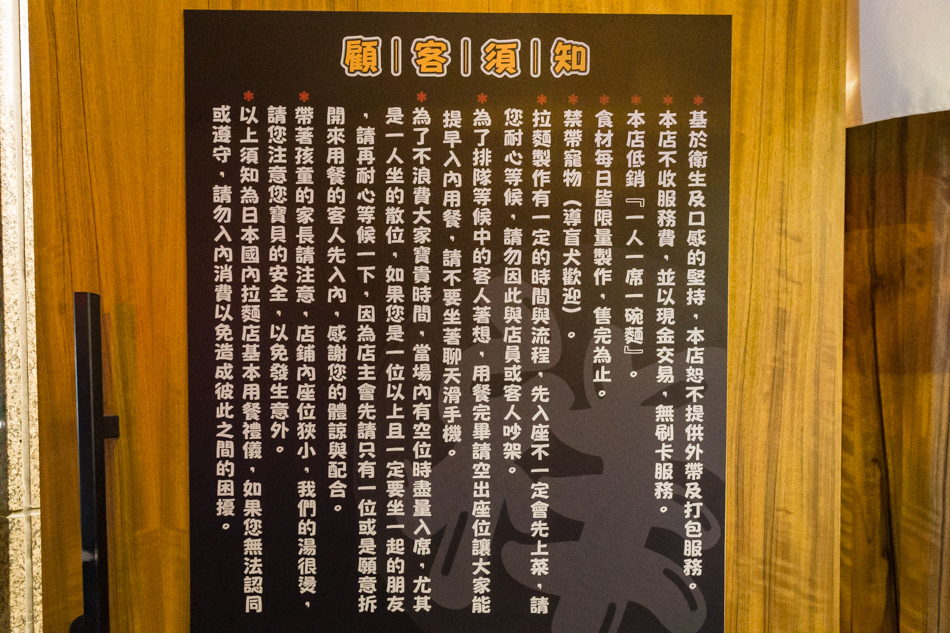 顧|客|須|知
*基於衛生及口感的堅持，本店恕不提供外帶及打包服務。
*本店不收服務費，並以現金交易，無刷卡服務。
*本店低銷『一人一席一碗麵』。
*食材每日皆限量製作，售完為止。
*禁帶寵物（導盲犬歡迎）。
*拉麵製作有一定的時間與流程，先入座不一定會先上菜，請
您耐心等候，請勿因此與店員或客人吵架。
*為了排隊等候中的客人著想，用餐完畢請空出座位讓大家能
提早入內用餐，請不要坐著聊天滑手機。
*為了不浪費大家寶貴時間，當場內有空位時盡量入席，尤其
是一人坐的散位，如果您是一位以上且一定要坐一起的朋友
，請再耐心等候一下，因為店主會先請只有一位或是願意拆
開來用餐的客人先入內，感謝您的體諒與配合。
*帶著孩童的家長請注意，店鋪內座位狹小，我們的湯很燙，
請您注意您寶貝的安全，以免發生意外。
*以上須知為日本國內拉麵店基本用餐禮儀，如果您無法認同
或遵守，請勿入內消費以免造成彼此之間的困擾。